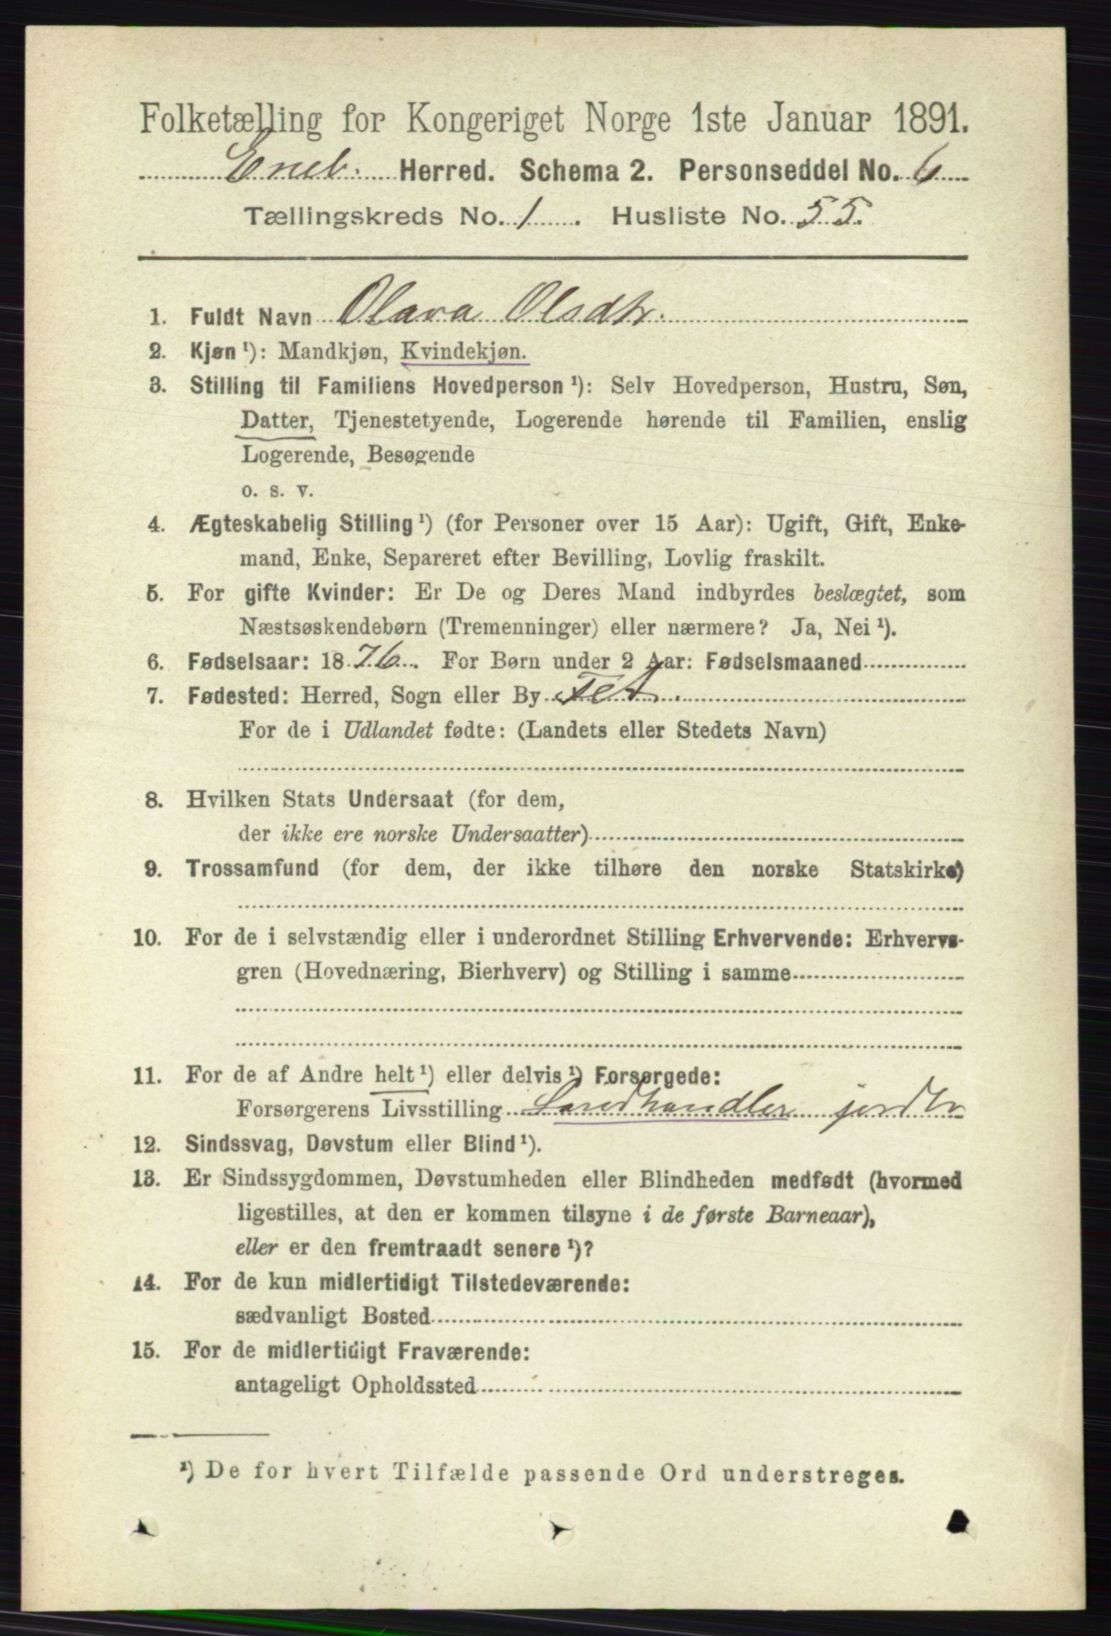 Folketælling for Kongeriget Norge 1ste Januar 1891.
Eneb. Herred. Schema 2. Personseddel No. 6
Tællingskreds No. 1 . Husliste No. 55.
1. Fuldt Navn Olava Olsdtr.
2. Kjøn ¹): Mandkjøn, Kvindekjøn.
3. Stilling til Familiens Hovedperson ¹): Selv Hovedperson, Hustru, Søn,
Datter, Tjenestetyende, Logerende hørende til Familien, enslig
Logerende, Besøgende
o. s. v.
4. Ægteskabelig Stilling ¹) (for Personer over 15 Aar): Ugift, Gift, Enke-
mand, Enke, Separeret efter Bevilling, Lovlig fraskilt.
5. For gifte Kvinder: Er De og Deres Mand indbyrdes beslægtet, som
Næstsøskendebørn (Tremenninger) eller nærmere? Ja, Nei ¹).
6. Fødselsaar: 1876. For Børn under 2 Aar: Fødselsmaaned
7. Fødested: Herred, Sogn eller By Fet.
For de i Udlandet fødte: (Landets eller Stedets Navn)
8. Hvilken Stats Undersaat (for dem,
der ikke ere norske Undersaatter)
9. Trossamfund (for dem, der ikke tilhøre den norske Statskirke)
10. For de i selvstændig eller i underordnet Stilling Erhvervende: Erhvervs-
gren (Hovednæring, Bierhverv) og Stilling i samme
11. For de af Andre helt ¹) eller delvis ¹) Forsørgede:
Forsørgerens Livsstilling Landhandler jordbr
12. Sindssvag, Døvstum eller Blind ¹).
13. Er Sindssygdommen, Døvstumheden eller Blindheden medfødt (hvormed
ligestilles, at den er kommen tilsyne i de første Barneaar),
eller er den fremtraadt senere ¹)?
14. For de kun midlertidigt Tilstedeværende:
sædvanligt Bosted
15. For de midlertidigt Fraværende:
antageligt Opholdssted
¹) De for hvert Tilfælde passende Ord understreges.